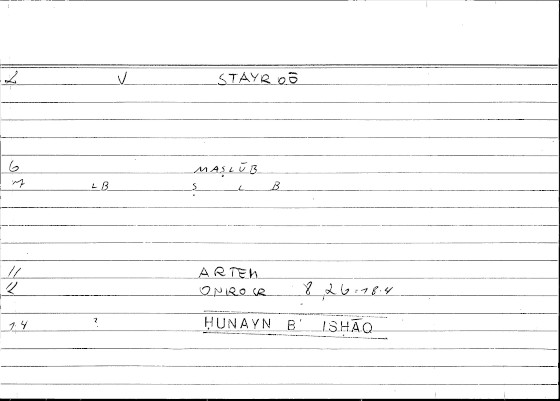 2 V STAYROŌ
6 MAṢLŪB
7 LB Ṣ L B
11 ARTEM
12 ONIROCR 8,26.18.4
14 ? ḤUNAYN B' ISḤĀQ